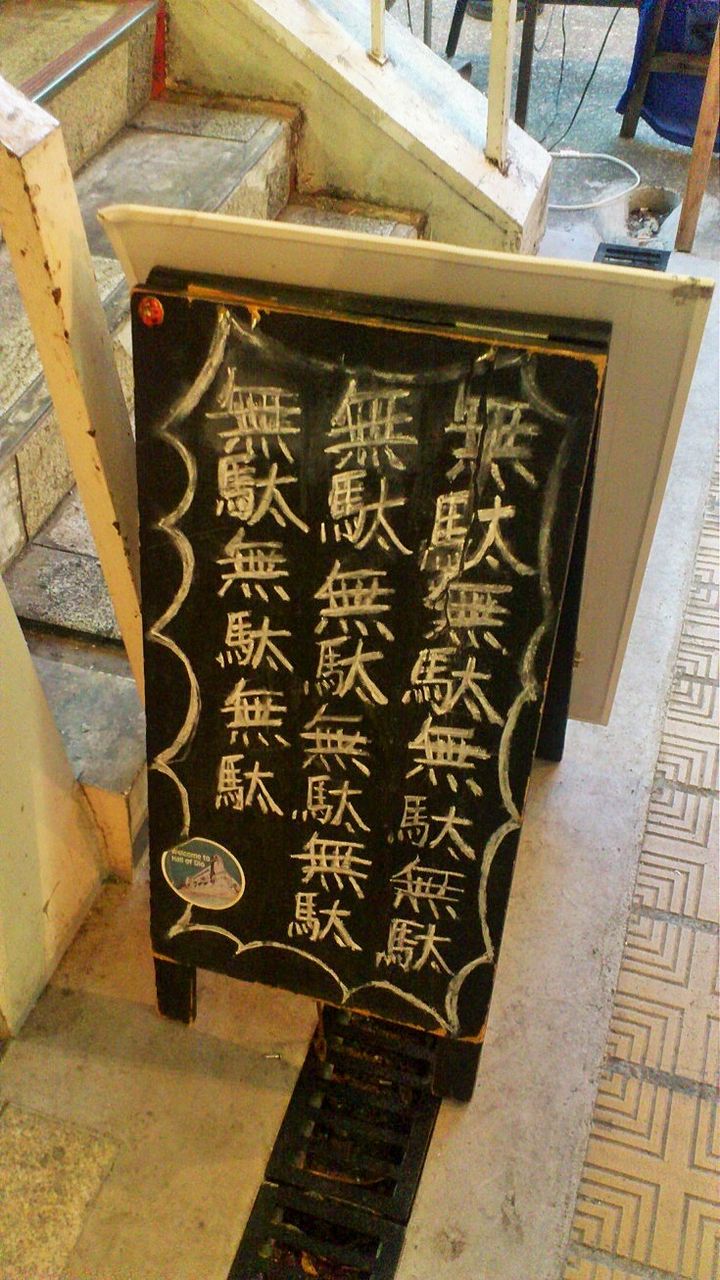 無駄無駄無駄無駄
無駄無駄無駄無駄
無駄無駄無駄
Welcome to
Hall of Dio